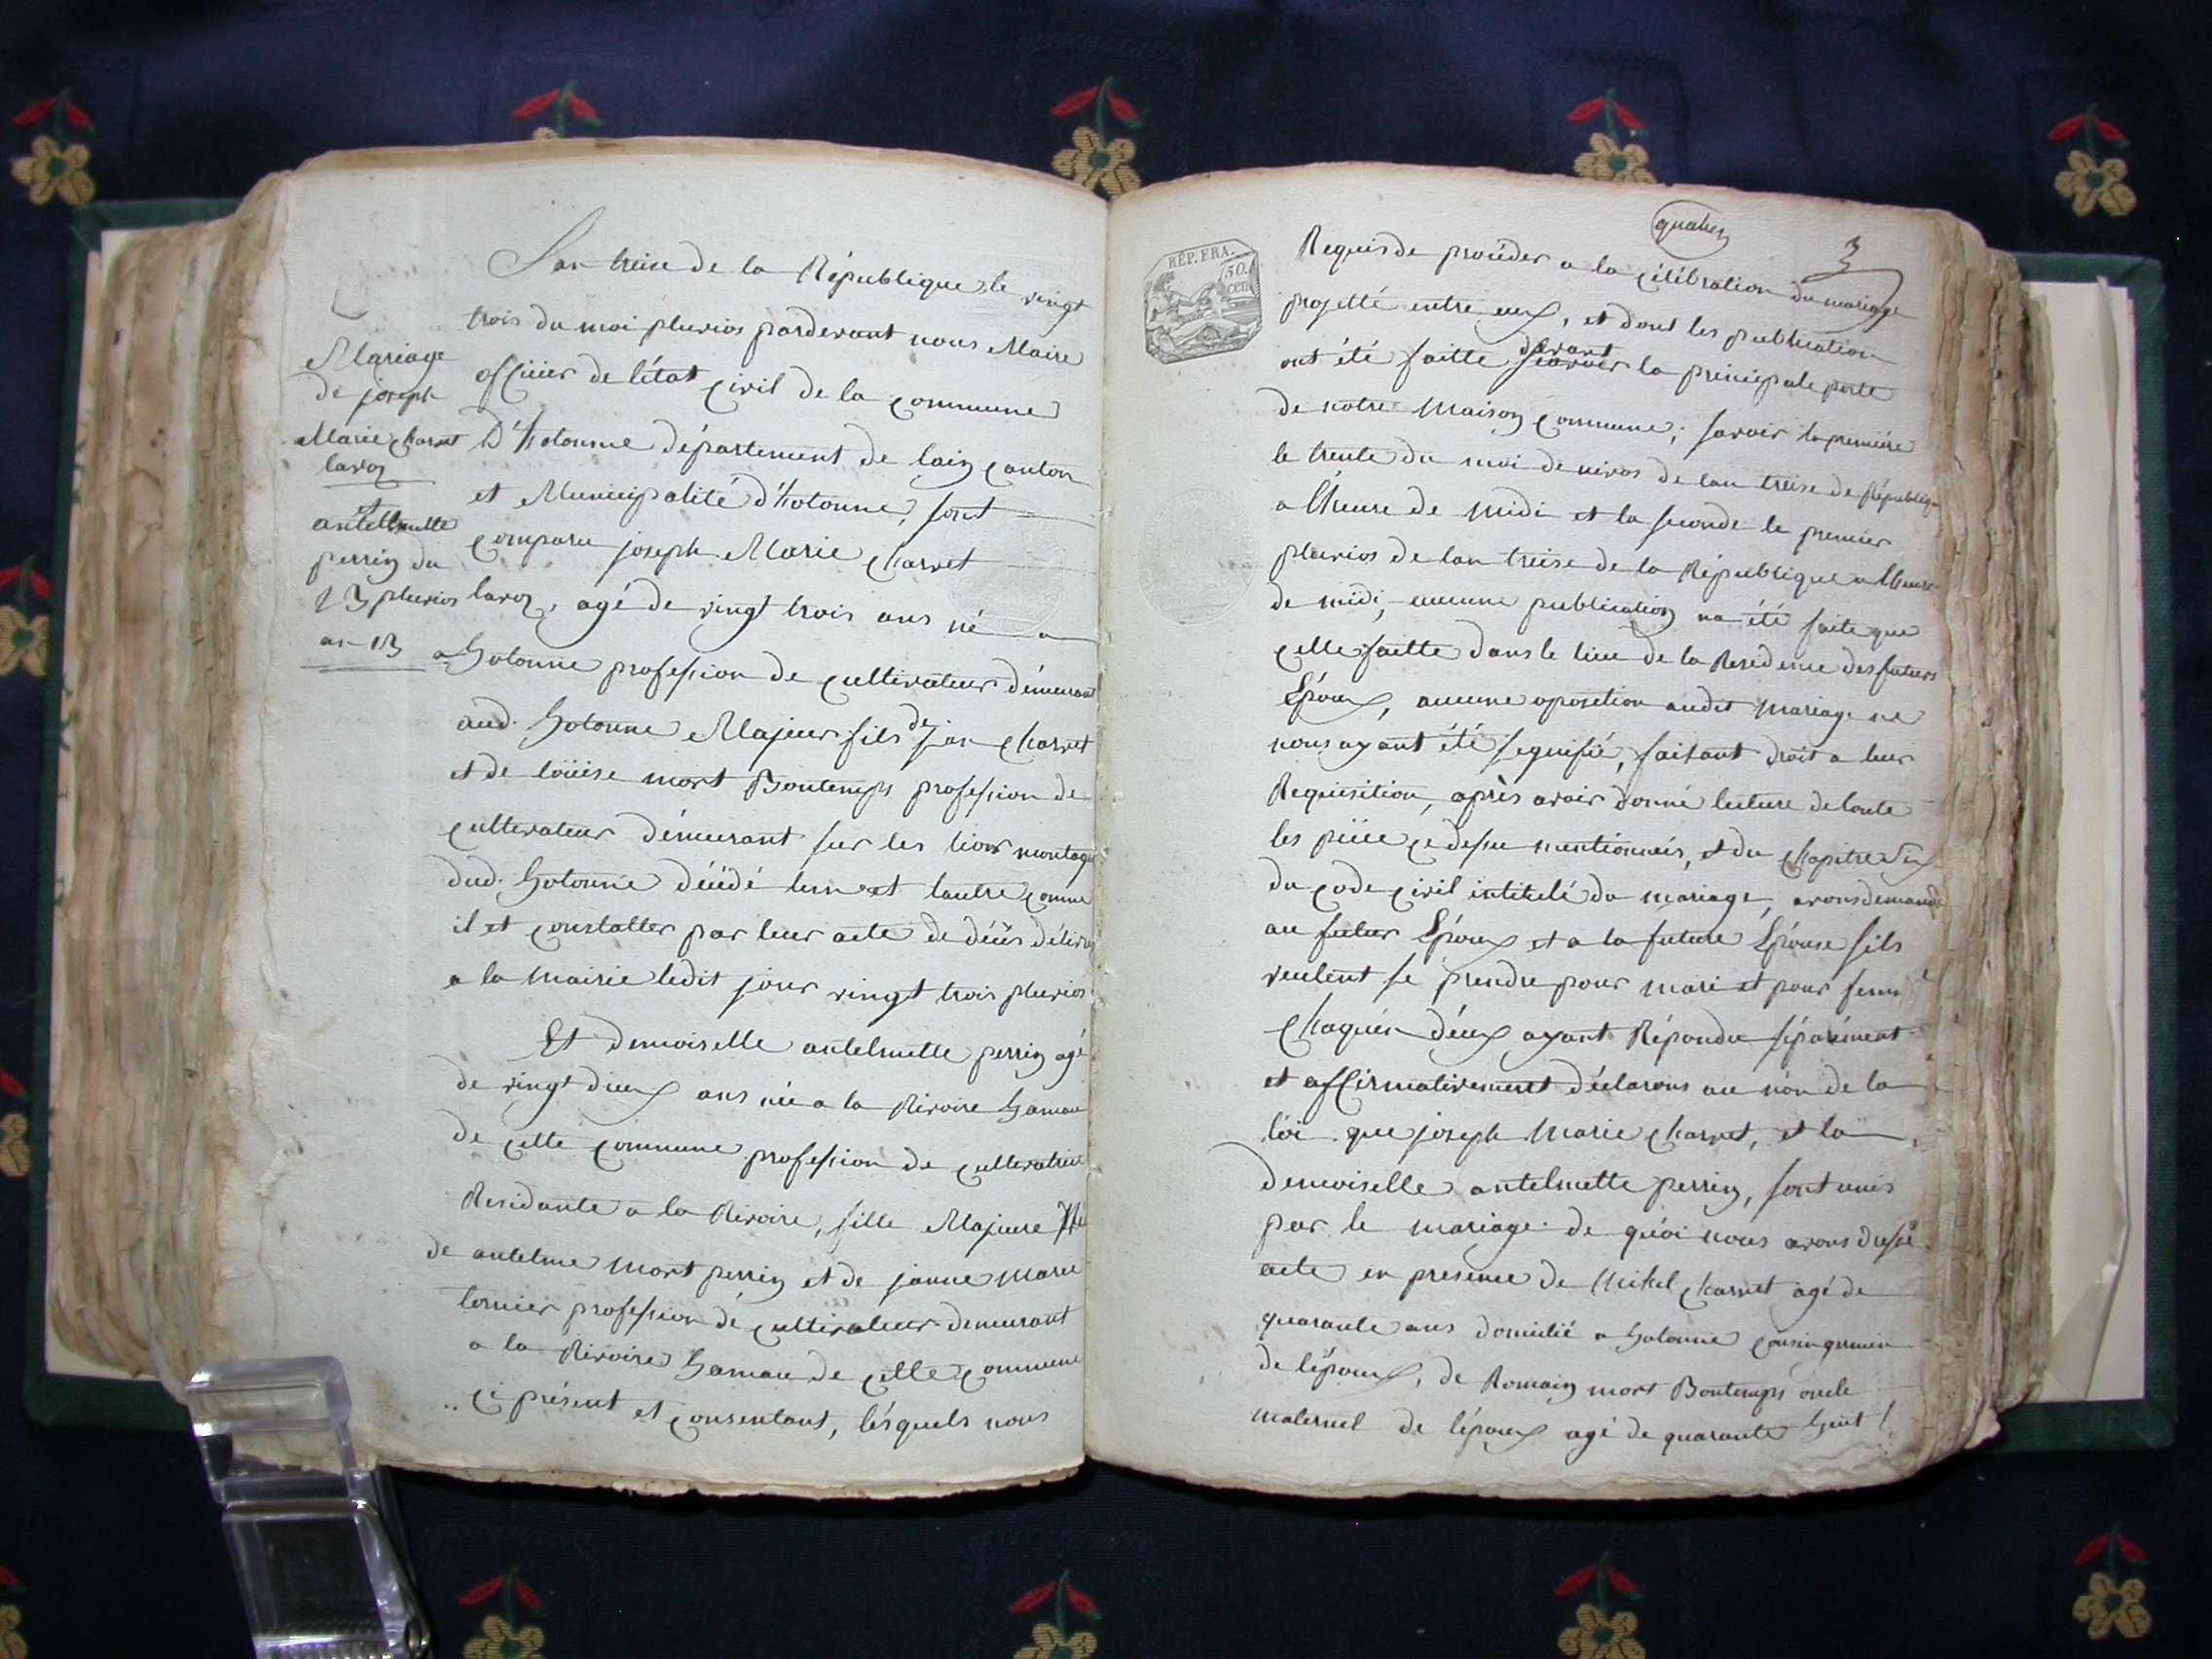 Mariage
de joseph
Marie Charvet
lavoz
et
antelmette
perrin du
23 pluvios
an 13
Lan treise de la République, le vingt
trois du moi pluvios pardevant nous Maire
officier de létat civil de la commune
D'hotonne département de lain canton
et Municipalité d'hotonne, sont
comparu joseph Marie Charvet
lavoz, agé de vingt trois ans né a
a hotonne profession de cultivateur démeurant
aud. hotonne Majeur fils de jan Charvet
et de loüise mort Bontemps profession de
cultivateur démeurant sur les lion montagne
dud. hotonne décédé lun et lautre comme
il et constatter par leur acte de décés délivré
a la mairie ledit jour vingt trois pluvios
Et demoiselle antelmette perrin agé
de vingt dieux ans née a la Rivoire hamau
de cette commune profession de cultivatrice
Residante a la Rivoire, fille Majeure
de antelme mort perrin et de janne marie
tornier profession de cultivateur demeurant
a la Rivoire hamau de cette commune
ci présent et consentant, lésquels nous
RÉP. FRA.
50 cen
quatre
3
Requis de procéder a la célébration du mariage
projetté entre eux, et dont les publication
ont été faitte devant la principale porte
de notre Maison Commune; savoir la premiére
le trente du moi de nivos de lan treise de République
a lheure de midi et la seconde le premier
pluvios de lan treise de la République a lheure
de midi, aucune publication na été faite que
celle faitte dans le lieu de la Residence des futurs
Epoux, aucune oposition audit mariage ne
nous ayant été signifié, faisant droit a leur
Requisition, après avoir donné lecture de toute
les piéce cedessu mentionnés, et du chapitre six
du code civil intitulé du mariage, avons demandé
au futur Epoux et a la future Epouse sils
veulent se prendre pour mari et pour femme
chaquén déux ayant Répondu séparément
et affirmativement déclarons au nón de la
lói que joseph Marie Charvet, et la
demoiselle antelmette perrin, sont unis
par le mariage. de quói nous avons dressé
acte en presence de Mikel Charvet agé de
quarante ans domicilié a hotonne cousin germin
de lépoux, de Romain mort Bontemps oncle
maternel de lépoux agé de quarante huit